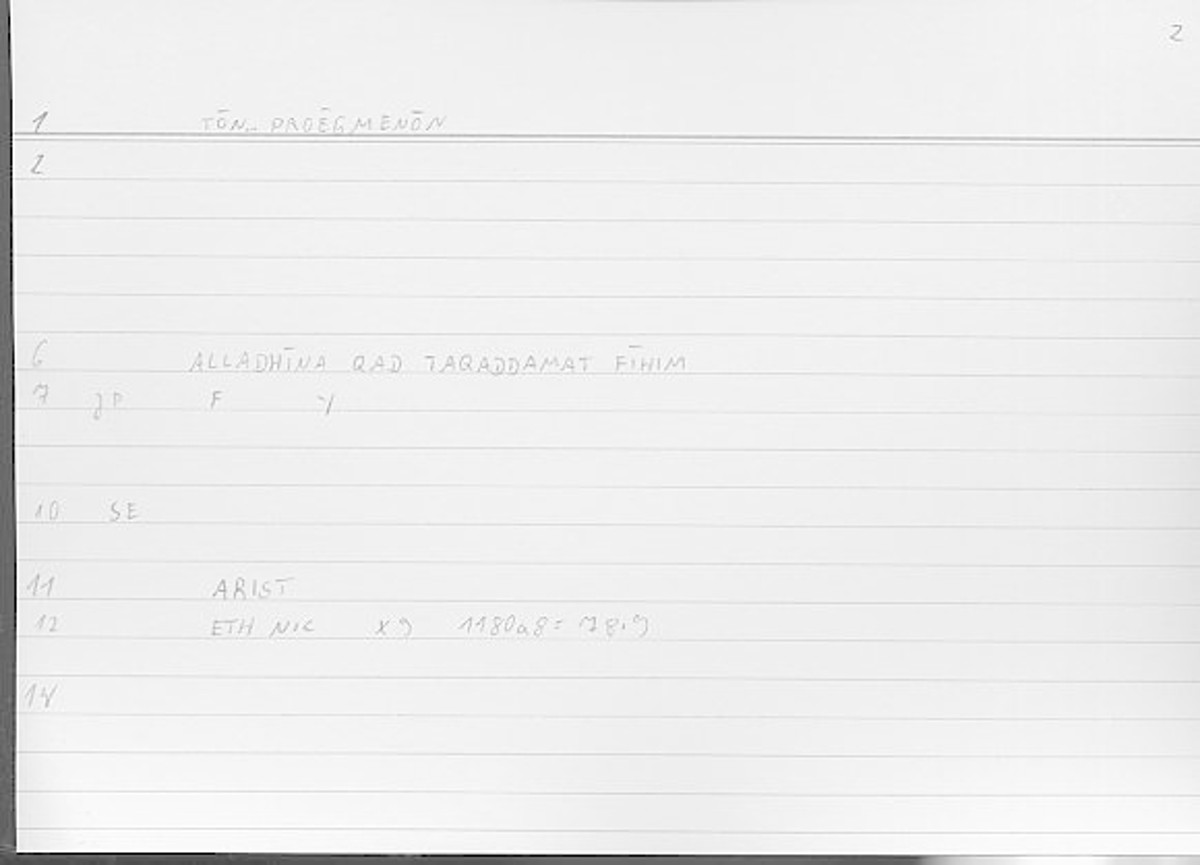 2
1 TŌN.. PROĒGMENŌN
2
6 ALLADHĪNA QAD TAQADDAMAT FĪHIM
7 F
10 SE
11 ARIST
12 ETH NIC X 9 1180a8 = 78.9
14